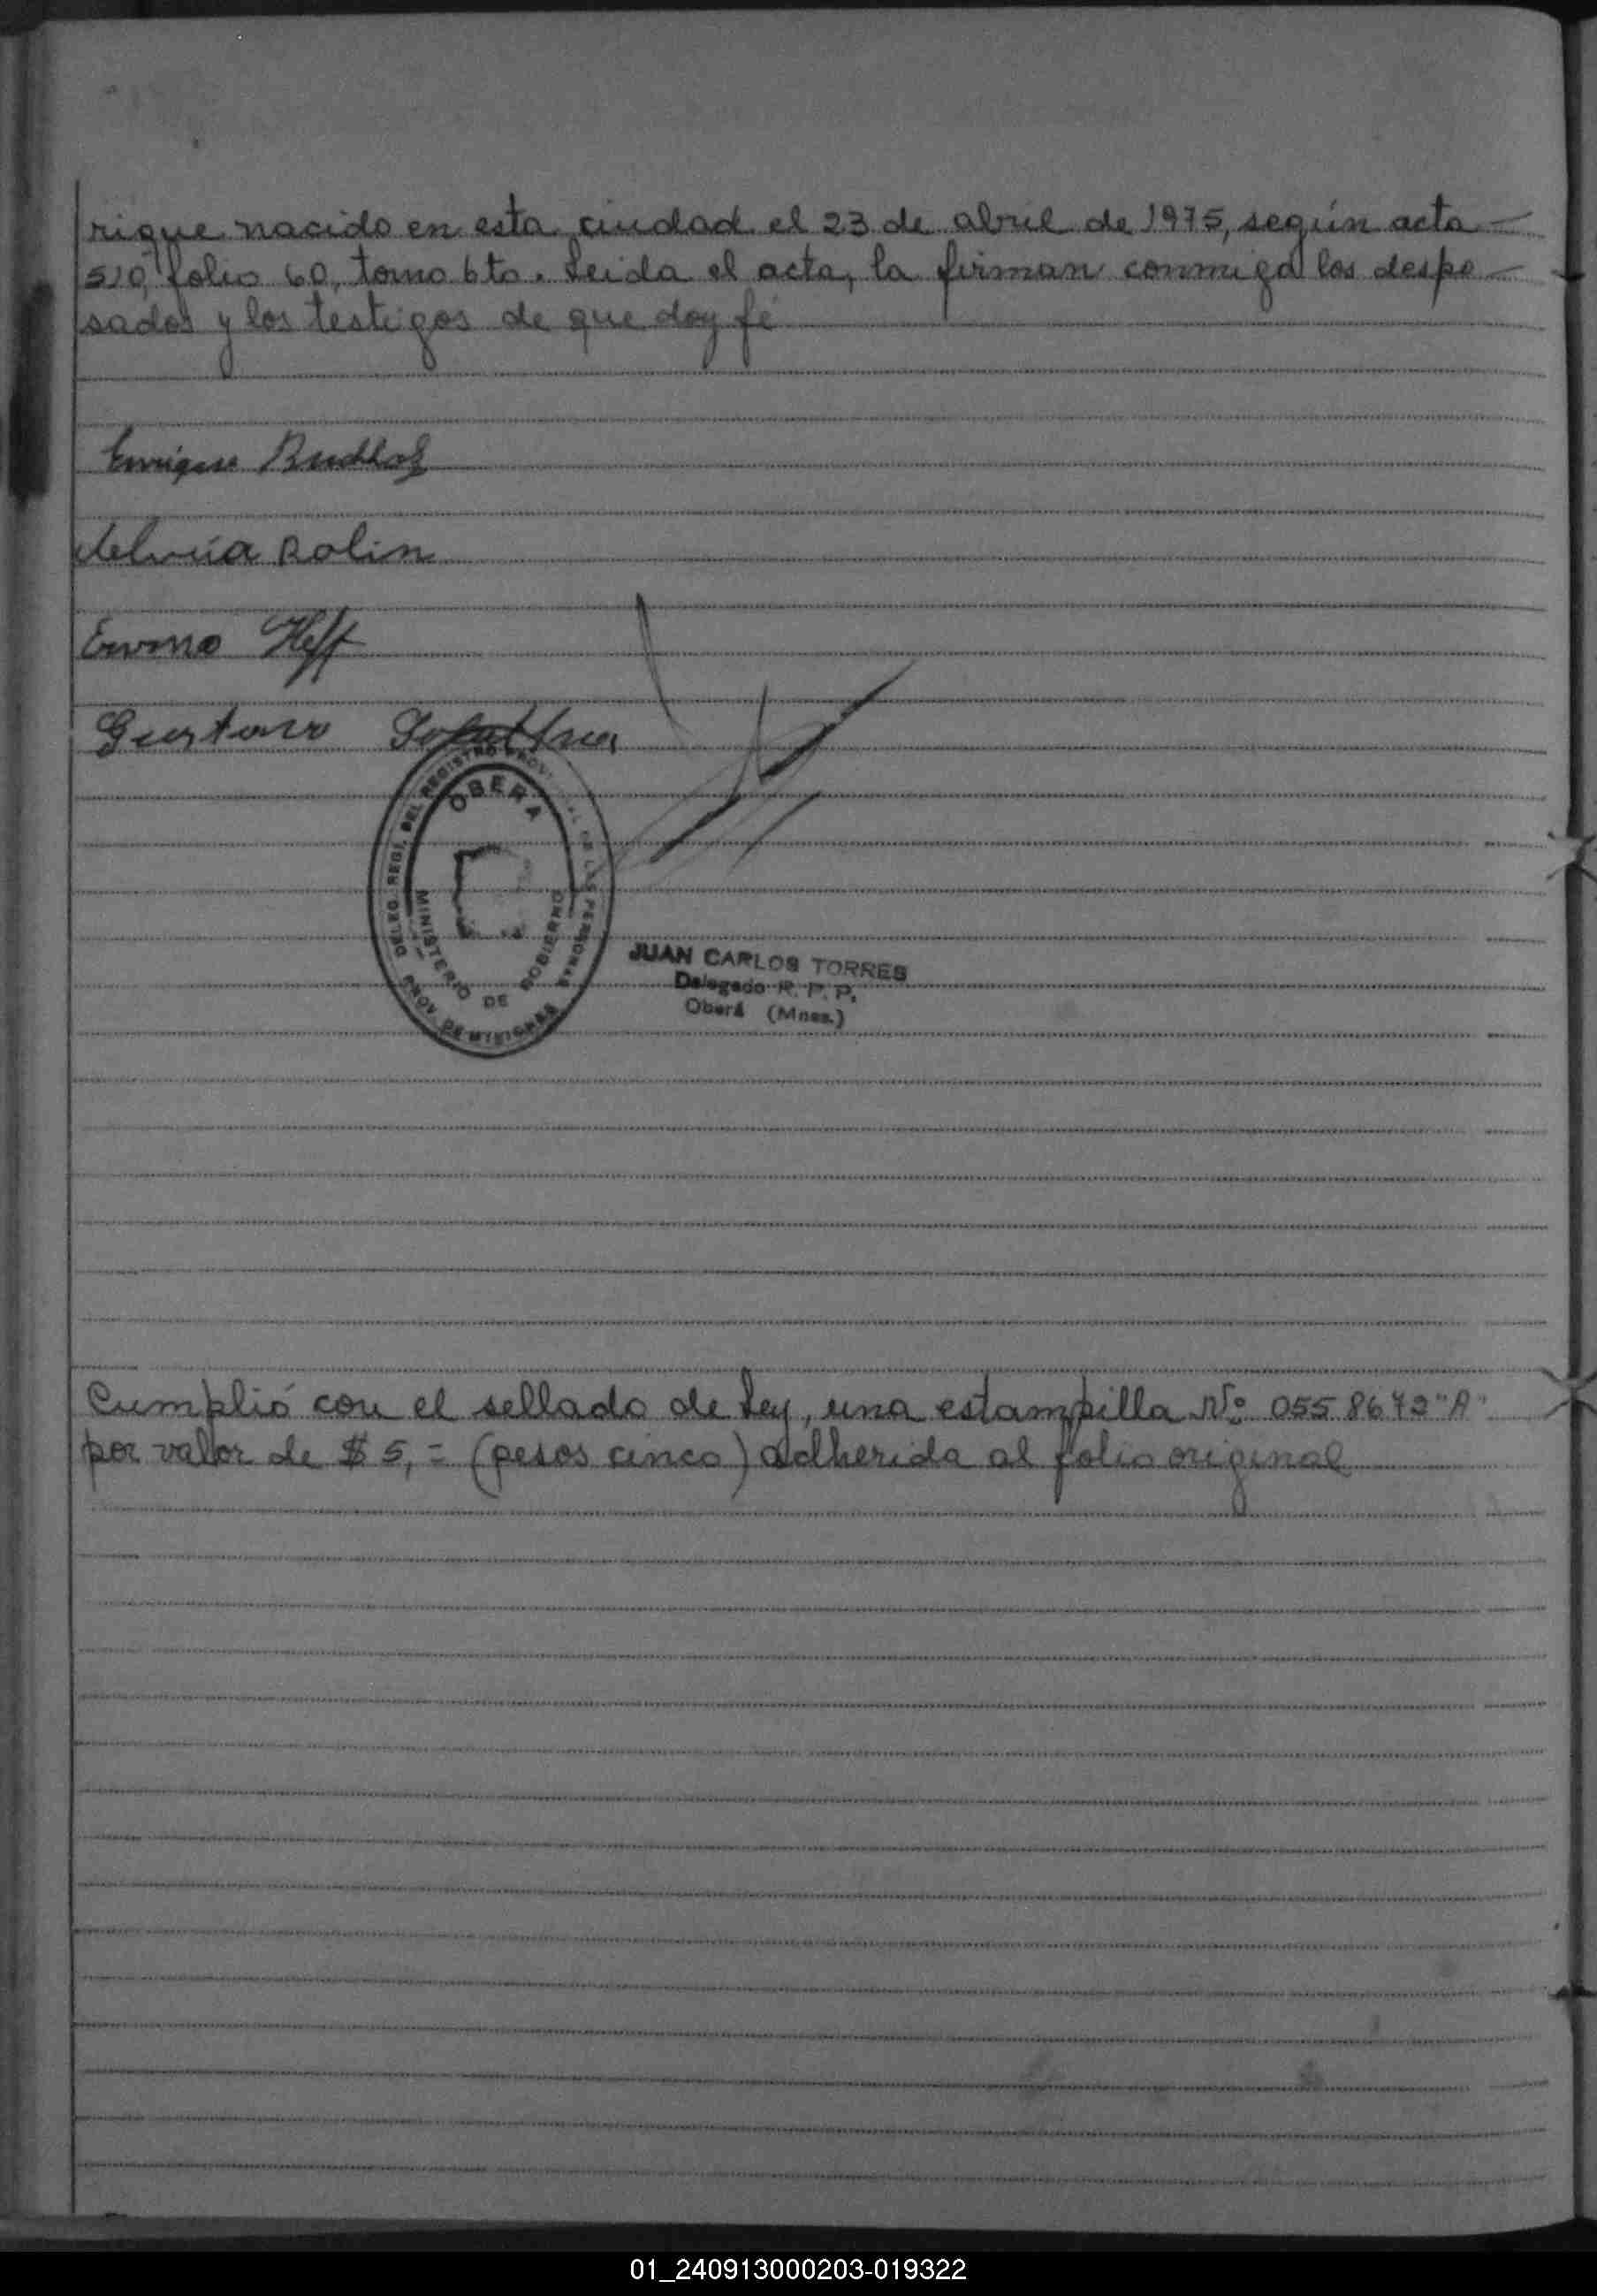 rique nacido en esta ciudad el 23 de abril de 1975, según acta
510, folio 60, tomo 6to. Leida el acta, la firman conmigo los despo
sados y los testigos de que doy fé
Enrique Buchholz
Rolin
Ervino Heff
Gustavo
DELEG. REGI. DEL REGISTRO PROVINCIAL DE LAS PERSONAS
OBERA
MINISTERIO DE GOBIERNO
PROV. DE MISIONES
JUAN CARLOS TORRES
Delegado R. P. P.
Oberá (Mnes.)
Cumplió con el sellado de Ley, una estampilla Nº 0558672 "A"
por valor de $ 5,= (pesos cinco) adherida al folio original
01_240913000203-019322